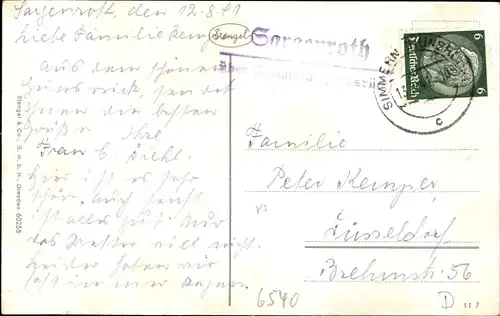 Sargenroth, den 12.8.41
Liebe Familie Kemper
Stempel
Aus dem schönen
Hunsrück, sendet
Ihnen die besten
Grüße Ihre
Frau E. Diehl.
Hier ist es sehr
schön. Auch sonst
ist alles gut. Nur
das Wetter will nicht.
Leider haben wir
fast immer Regen.
Stengel & Co., G. m. b. H., Dresden 60255
Sargenroth
über Simmern
SIMMERN (HUNSRÜCK)
c
6 Deutsches Reich 6
Familie
Peter Kemper
Düsseldorf
Brehmstr. 56
6540
D